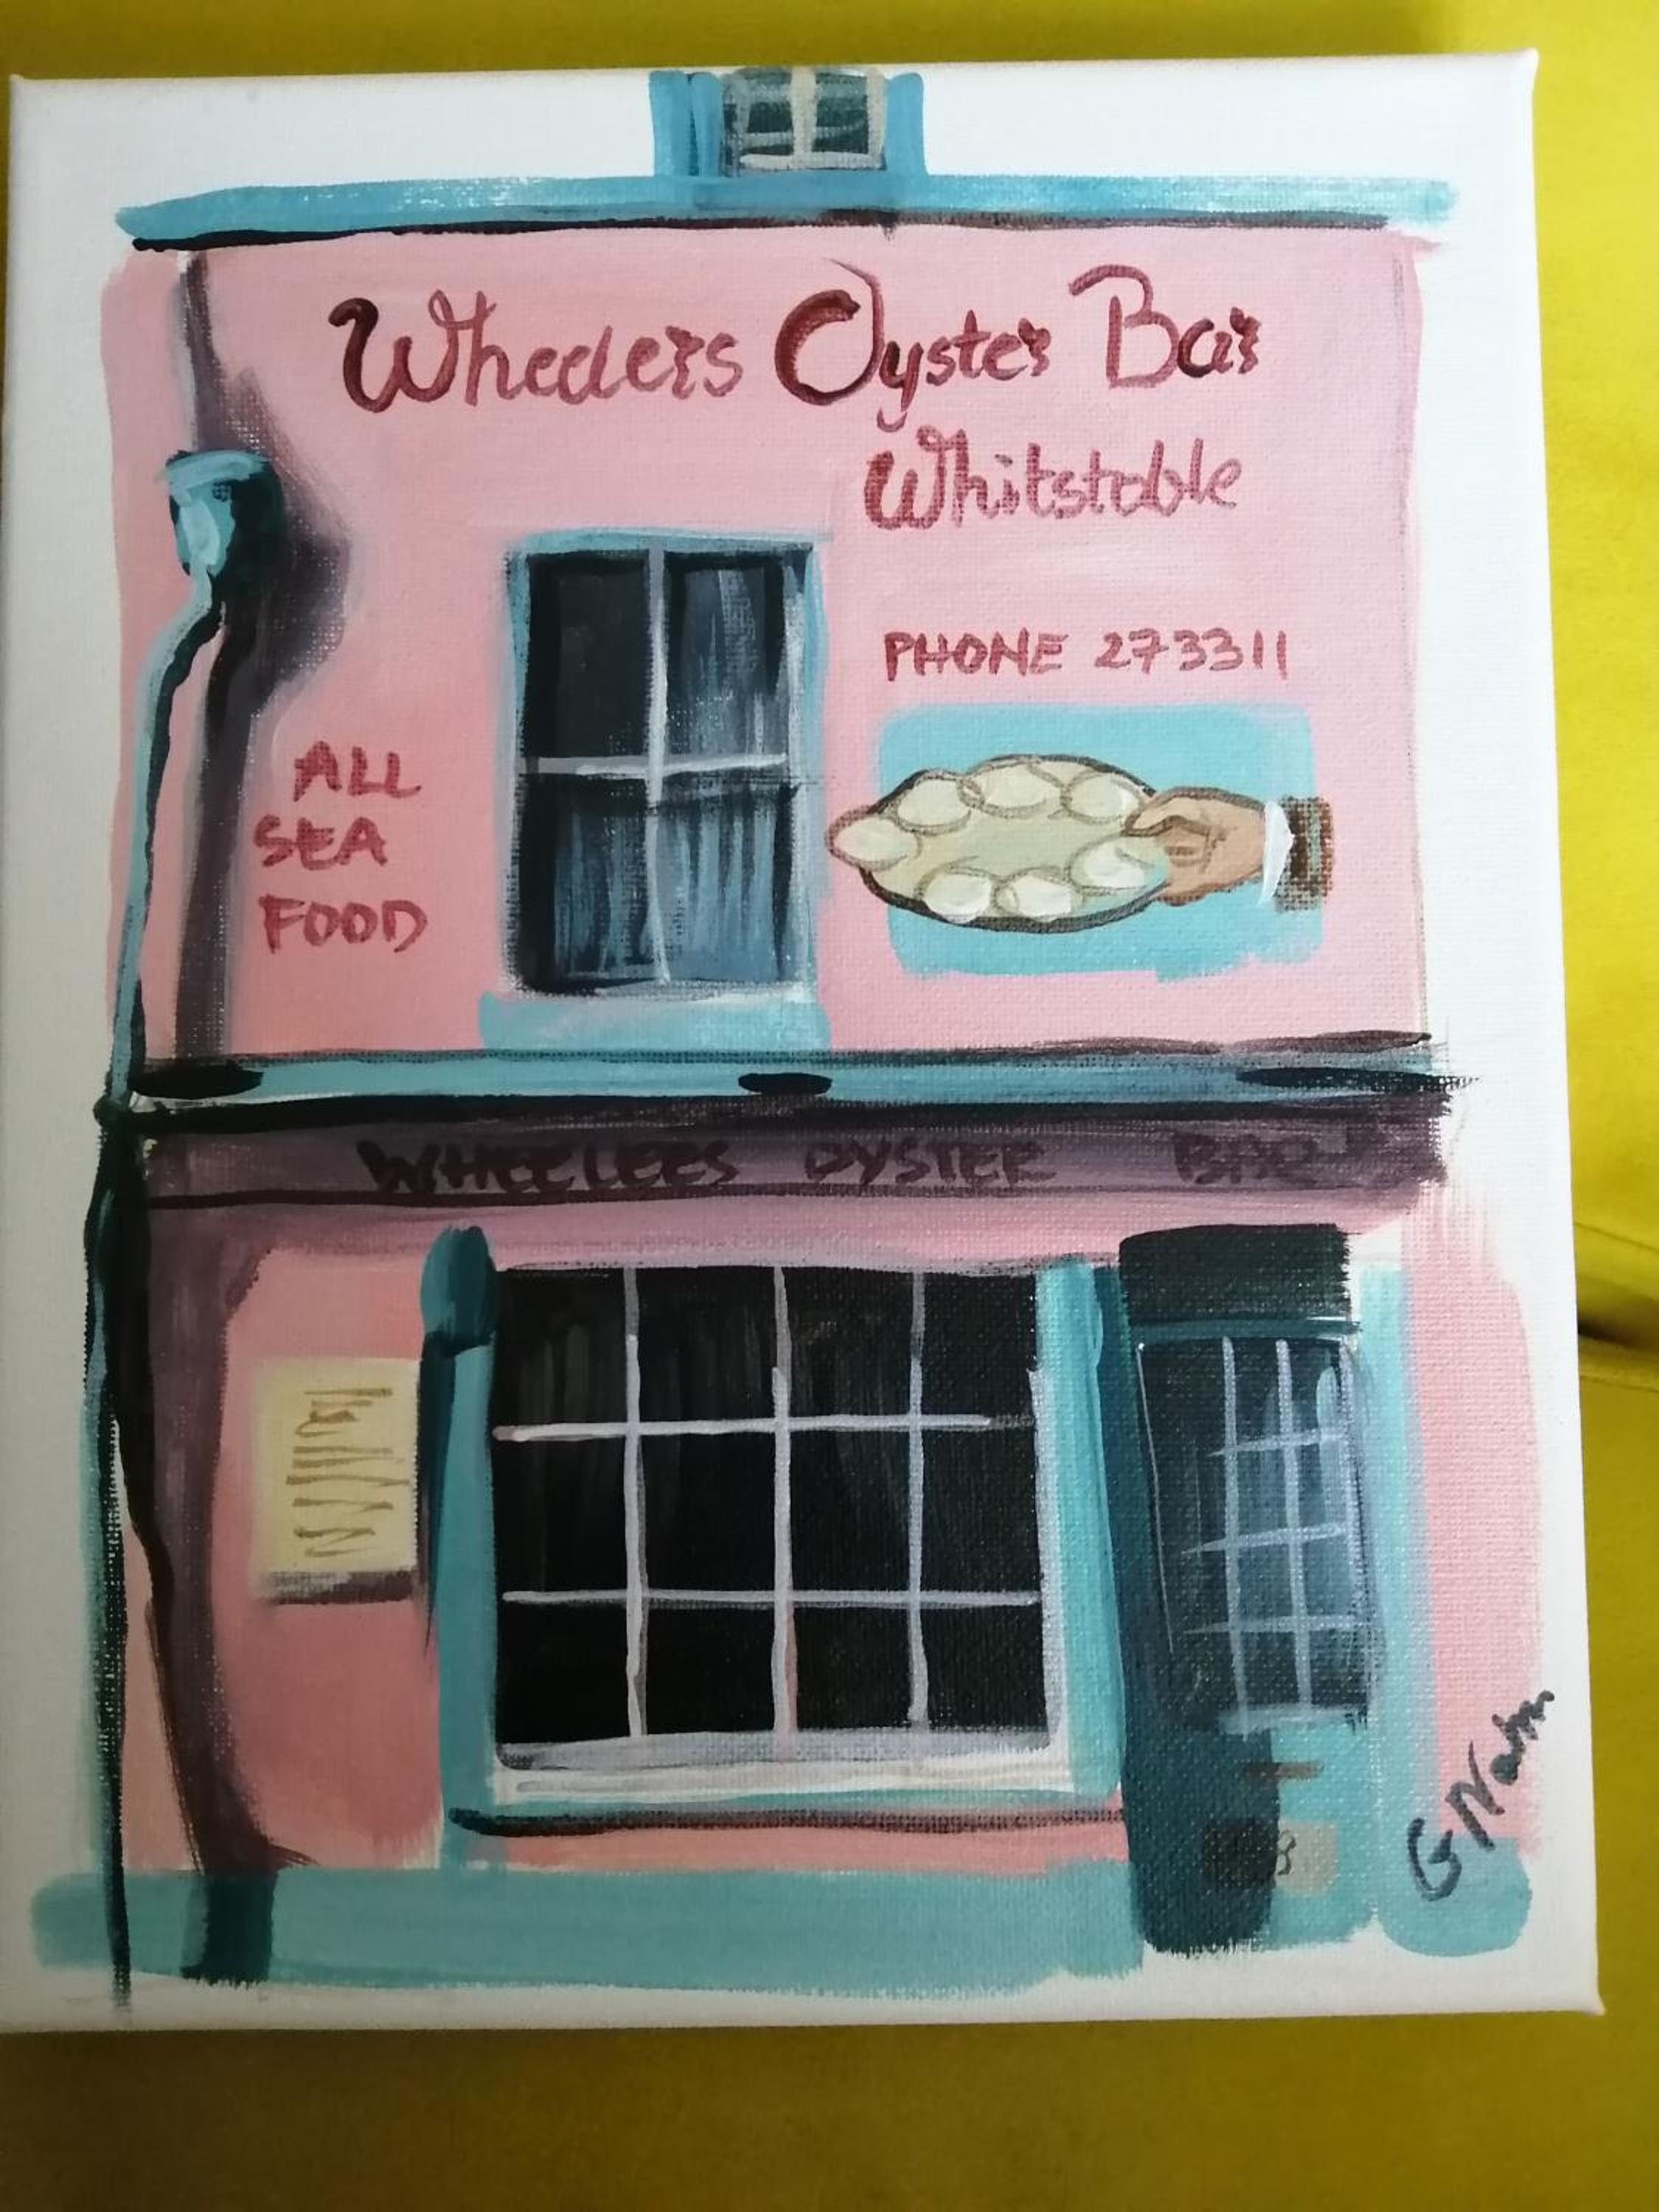 Wheelers Oyster Bar
Whitstable
PHONE 273311
ALL
SEA
FOOD
WHEELEES OYSTER BAR
8